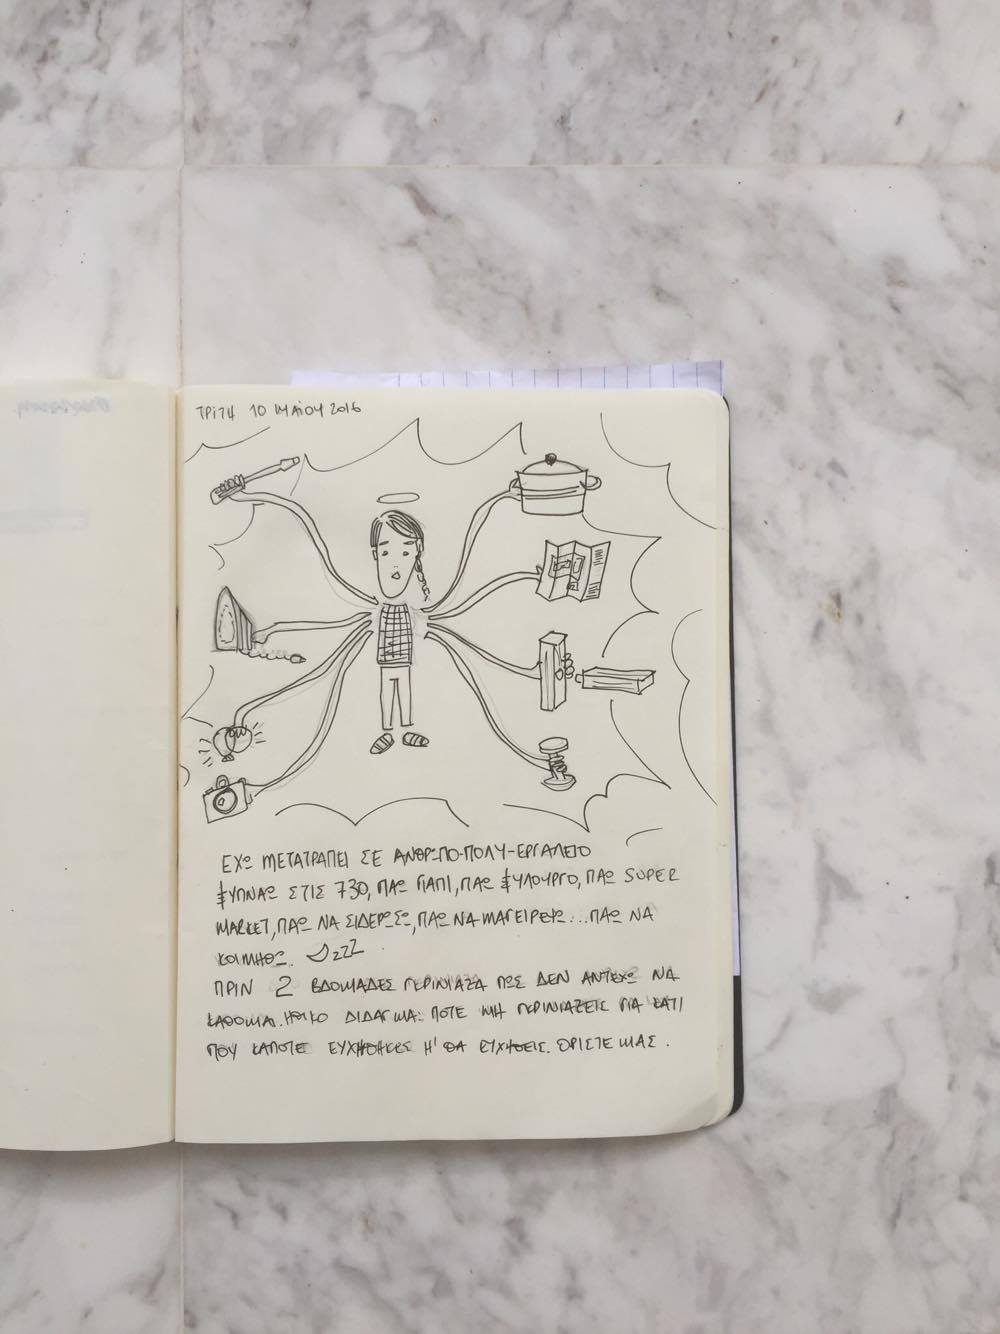 ΤΡΙΤΗ 10 ΜΑΪΟΥ 2016
ΕΧΩ ΜΕΤΑΤΡΑΠΕΙ ΣΕ ΑΝΘΡΩΠΟ-ΠΟΛΥ-ΕΡΓΑΛΕΙΟ
ΞΥΠΝΑΩ ΣΤΙΣ 730, ΠΑΩ ΓΙΑΠΙ, ΠΑΩ ΞΥΛΟΥΡΓΟ, ΠΑΩ SUPER
MARKET, ΠΑΩ ΝΑ ΣΙΔΕΡΩΣΩ, ΠΑΩ ΝΑ ΜΑΓΕΙΡΕΨΩ... ΠΑΩ ΝΑ
ΚΟΙΜΗΘΩ. ZZZ
ΠΡΙΝ 2 ΒΔΟΜΑΔΕΣ ΓΚΡΙΝΙΑΖΑ ΠΩΣ ΔΕΝ ΑΝΤΕΧΩ ΝΑ
ΚΑΘΟΜΑΙ. ΗΘΙΚΟ ΔΙΔΑΓΜΑ: ΠΟΤΕ ΜΗ ΓΚΡΙΝΙΑΖΕΙΣ ΓΙΑ ΚΑΤΙ
ΠΟΥ ΚΑΠΟΤΕ ΕΥΧΗΘΗΚΕΣ Η' ΘΑ ΕΥΧΗΘΕΙΣ. ΟΡΙΣΤΕ ΜΑΣ.